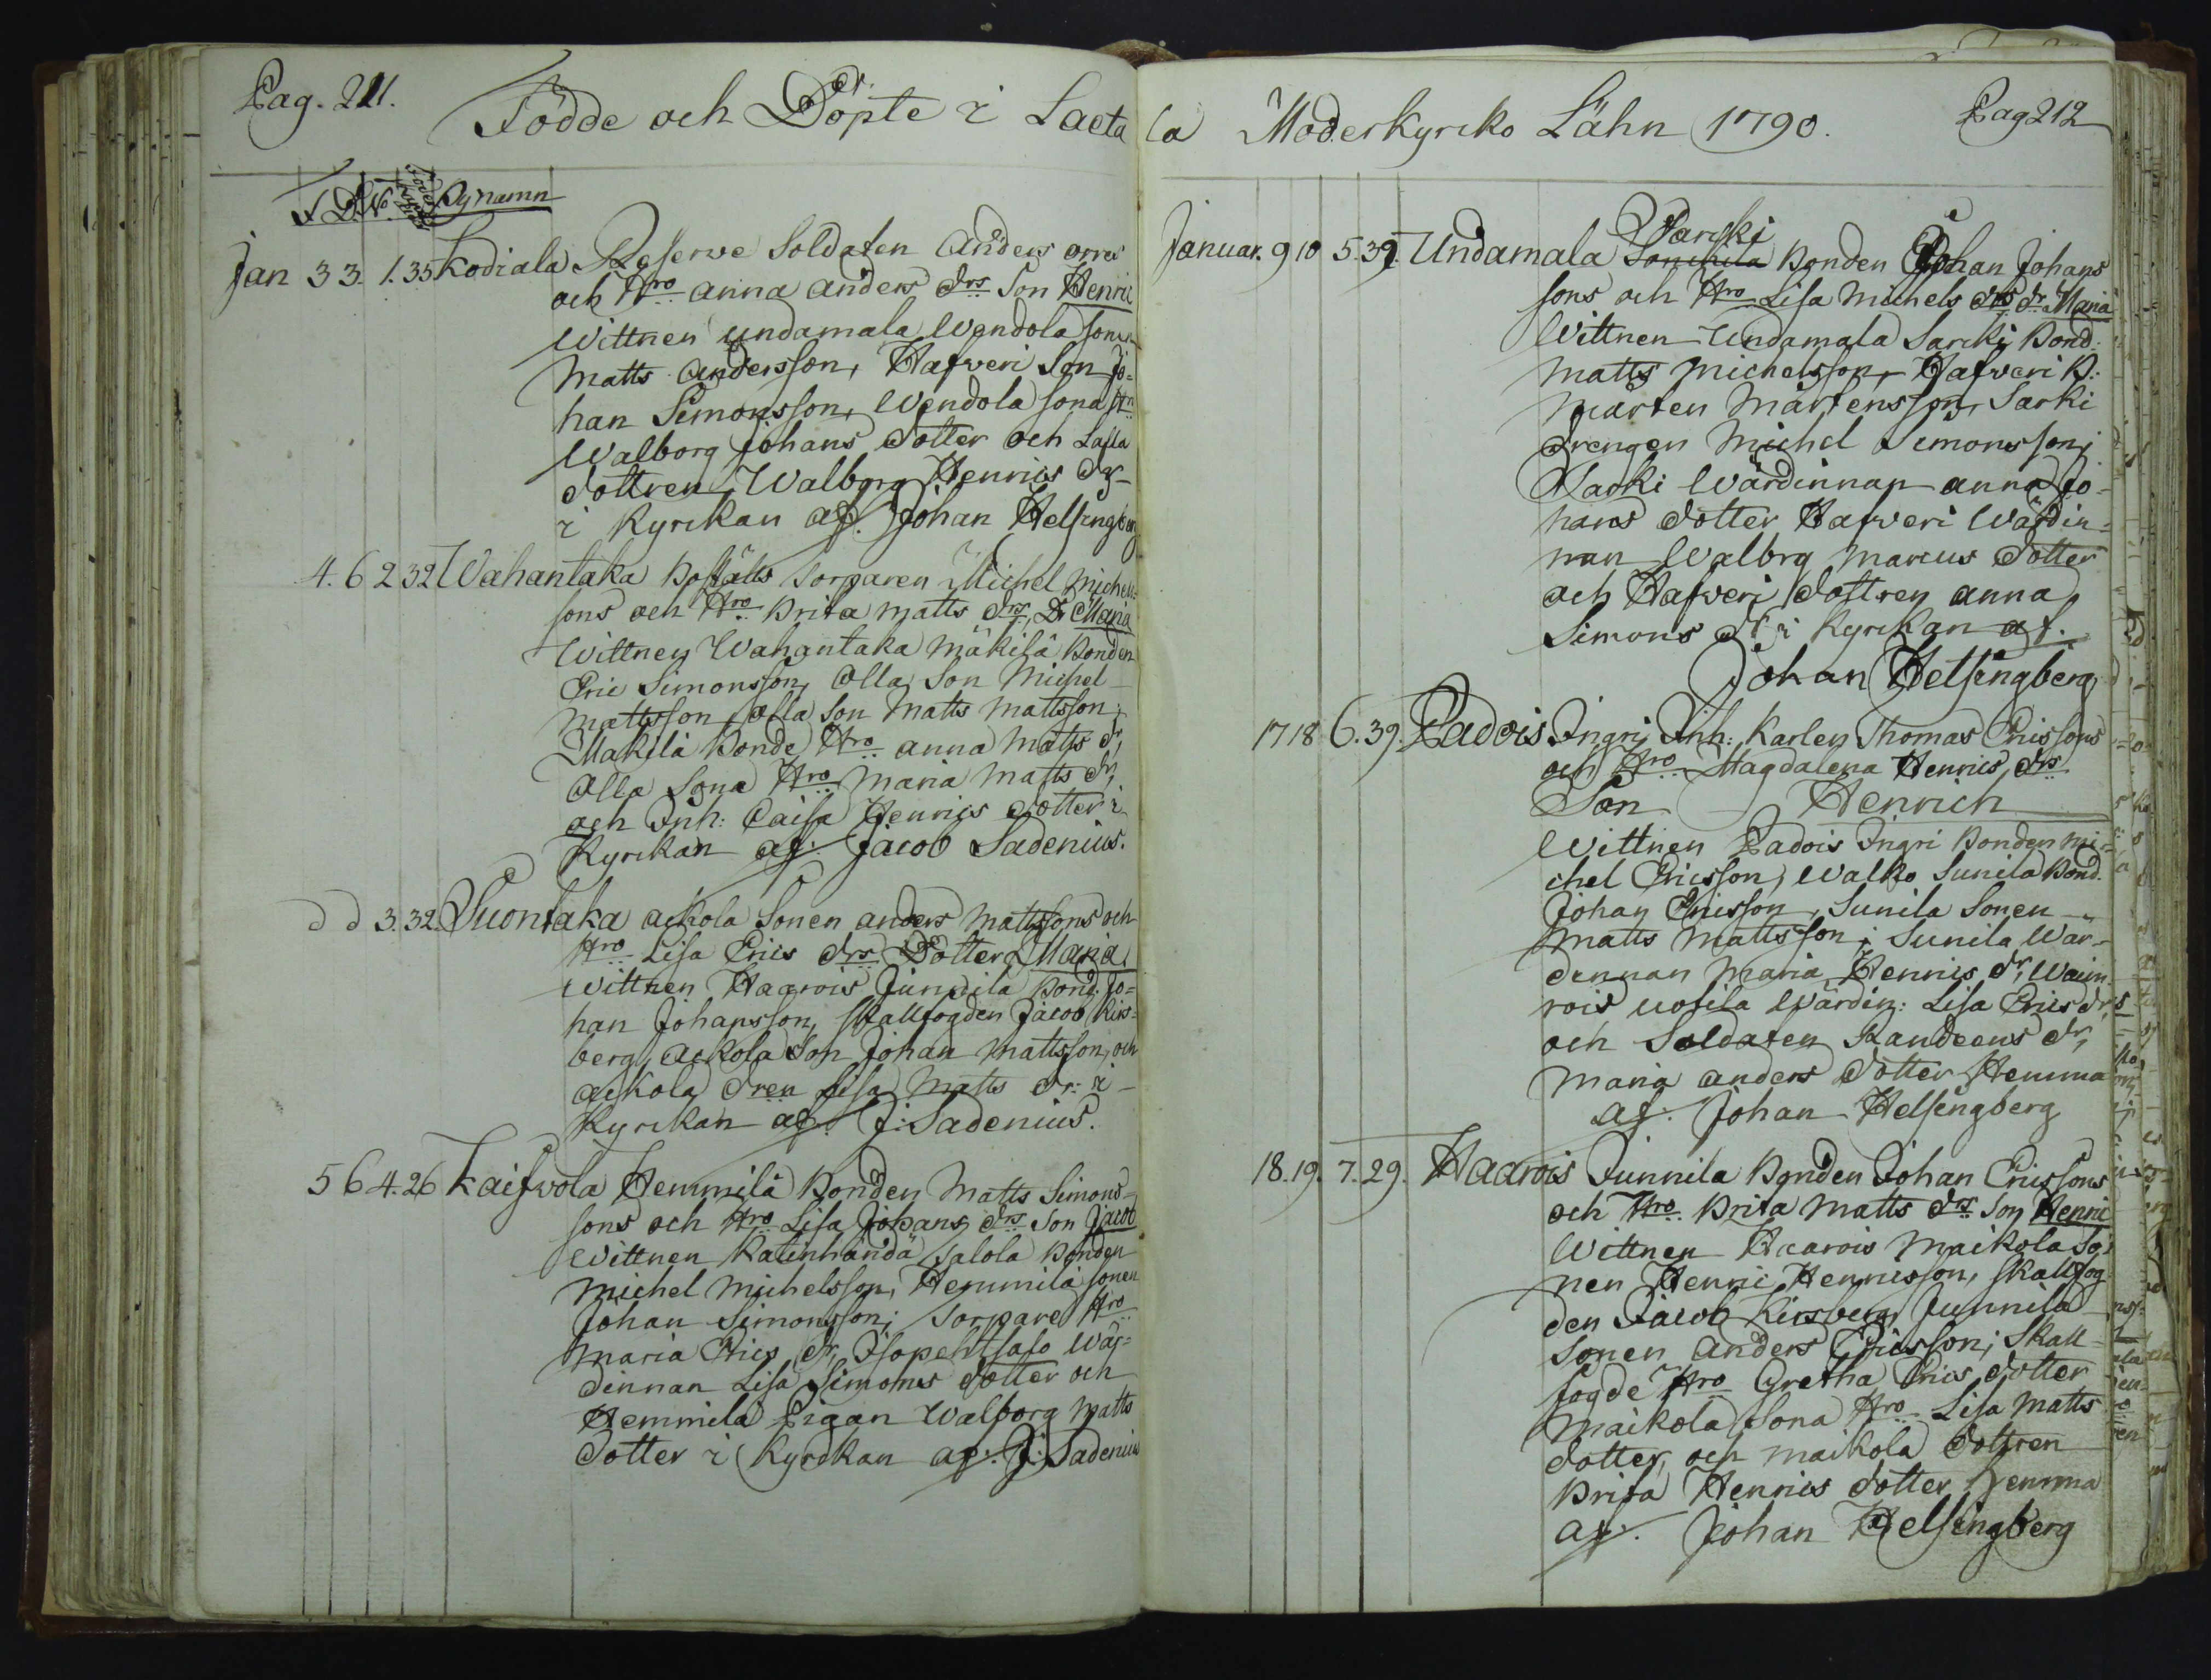 Pag. 211.
Födde och Döpte i Lacta
F. D. N. Byнamn
Jan 3 3. 1. 35 Kodiala Reserve Soldaten Anders orres
och Hro Anna Anders drs Son Henric
Wittnen Undamala Wendola sonen
Matts Andersson, Hafveri Son Jo=
han Simonsson, Wendola sona Hro
Walborg Johans dotter och
dottren Walborg Henrics dr
i Kyrckan af. Johan Helsingberg
4. 6 2 32 Wahantaka Boställs Torparen Michel Michels=
sons och Hro Brita Matts drs, Dr Maria
Wittnen Wahantaka Mäkilä Bonden
Eric Simonsson, Olla Son Michel
Mattsson, Olla Son Matts Mattsson;
Mäkilä Bonde Hro Anna Matts dr,
Olla Sona Hro Maria Matts dr,
och Inh: Caisa Henrics dotter i
Kyrckan af. Jacob Sadenius.
d d 3. 32. Suontaka Ackola Sonen Anders Mattssons och
Hro Lisa Erics drs Dotter Maria
Wittnen Haarois Junnila Bond. Jo=
han Johansson, skallfogden Jacob Kirs=
berg, Ackola Son Johan Mattsson, och
Ackola dren Lisa Matts dr: i
Kyrckan af. J: Sadenius.
5 6 4. 26 Kaifvola Hemmilä Bonden Matts Simons=
sons och Hro Lisa Johans drs Son Jacob
Wittnen Katinhändä Salola Bonden
Michel Michelsson, Hemmilä sonen
Johan Simonsson; Torpare Hro
Maria Erics dr, Isopeltsalo Wär=
dinnan Lisa Simons dotter och
Hemmilä Pigan Walborg Matts
Dotter i Kyrckan af. J: Sadenius
la Moderkyrko Lähn 1790.
Pag 212
Sarcki
Januar. 9 10 5. 39. Undamala Bonden Johan Johans
sons och Hro Lisa Michels drs dr Maria
Wittnen Undamala Sarcki Bond:
Matts Michelsson, Hafveri B:
Mårten Mårtensson, Sarki
Drengen Michel Simonsson;
Sarki Wärdinnan Anna Jo=
hans dotter Hafveri Wärdin=
nan Walbrg Marcus dotter
och Hafveri dottren Anna
Simons dr i Kyrckan af.
Johan Helsingberg
17 18 6. 39. Padois Ingri Inh: Karlen Thomas Ericssons
och Hro Magdalena Henrics drs
Son Henrich
Wittnen Padois Ingri Bonden Mi=
chel Ericsson, Walko Sunila Bond.
Johan Ericsson, Sunila Sonen
Matts Mattsson; Sunila Wär=
dennan Maria Henrics dr, Wain=
rois Uotila Wärdin: Lisa Erics dr,
och Soldaten Randeens dr,
Maria Anders dotter Hemma
af. Johan Helsingberg
18. 19. 7. 29. Haarois Junnila Bonden Johan Ericssons
och Hro Brita Matts drs Son Henric
Wittnen Haarois Maikola So=
nen Henric Henricsson, skallfog
den Jacob Kirsberg Junnila
Sonen Anders Ericsson; Skall=
fogde Hro Gretha Erics dotter
Maikola Sona Hro Lisa Matts
dotter, och Maikola dottren
Brita Henrics dotter hemma
af. Johan Helsingberg